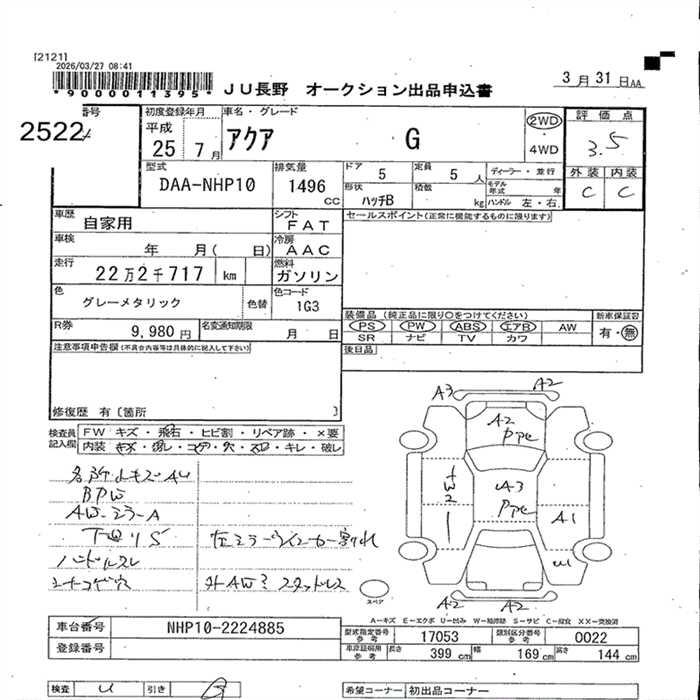 [2121]
2026/03/27 08:41
*9000011395*
JU長野 オークション出品申込書
3月31日AA
番号
2522
初度登録年月
平成
25 7月
車名・グレード
アクア G
2WD
4WD
評価点
3.5
外装 内装
C C
型式
DAA-NHP10
排気量
1496 CC
ドア 5
定員 5人
形状 ハッチB
積数 kg
ディーラー・並行
モデル年式 年
ハンドル 左・右
車歴
自家用
シフト
FAT
セールスポイント(正常に機能するものに限ります)
車検
年 月( 日)
冷房
AAC
走行
22万2千717 km
燃料
ガソリン
色
グレーメタリック
色替
色コード
1G3
装備品(純正品に限り○をつけてください)
新車保証書
PS PW ABS エアB AW
SR ナビ TV カワ
有・無
R券 9,980円
名変通知期限 月 日
後日品
注意事項申告欄(不具合内容等は具体的に記入して下さい)
修復歴 有[箇所 ]
検査員記入欄
FW キズ・飛石・ヒビ割・リペア跡・×要
内装 キズ・汚レ・コゲ・穴・スレ・キレ・破レ
BPW
AW・ミラーA
下廻りS
左ミラーウインカー割れ
ハンドルスレ
シートコゲ穴
外AWミスタッドレス
A3 A2
A2
PPe
A3
PPe
W2
A1
U
A2 A2
スペア
A-キズ E-エクボ U-凹み W-補修跡 S-サビ C-腐食 XX-交換済
車台番号 NHP10-2224885
登録番号
型式指定番号 参考 17053
類別区分番号 参考 0022
車庫証明用 参考 長さ 399 cm 幅 169 cm 高さ 144 cm
検査 引き
希望コーナー 初出品コーナー